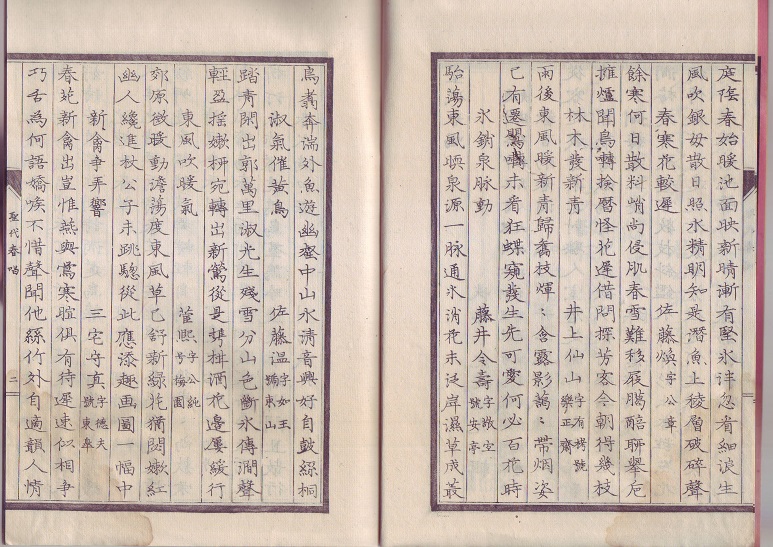 庭陰春始暖池面映新晴漸有堅氷泮忽看細浪生
風吹銀毋散日照水精明知是潛魚上稜層破碎聲
春寒花較遲　佐藤煥字公章
餘寒何日散料峭尚侵肌春雪難移屐臈醅聊舉卮
擁爐聞鳥轉換曆怪花遲借問探芳客今朝得幾枝
林木發新青　井上仙山字有拷號樂正齋
雨後東風暖新青歸舊枝煇〻含露影藹〻帶烟姿
已有遷鶯囀未看狂蝶窺發生先可愛何必百花時
氷銷泉脉動　藤井令壽字故空號安亭
駘蕩東風煗泉源一脉通氷消花未泛岸濕草成叢
鳥翥奔湍外魚遊幽壑中山水清音興好自鼓絲桐
淑氣催黃鳥　佐藤温字如玉號東山
踏青閑出郭萬里淑光生殘雪分山色斷氷傳澗聲
輕盈搖嫰柳宛轉出新鶯從是携柑酒花邊屢緩行
東風吹暖氣　菫熙字公純号梅園
郊原微暖動澹蕩度東風草已舒新綠花猶閟嫰紅
幽人纔進杖公子未跳驄從此應添趣画圖一幅中
新禽爭弄響　三宅守真字德夫號東皐
春苑新禽出豈惟燕與鶯寒暄俱有待遲速似相爭
巧舌為何語嬌喉不惜聲聞他絲竹外自適韻人情
聖代春唱
二